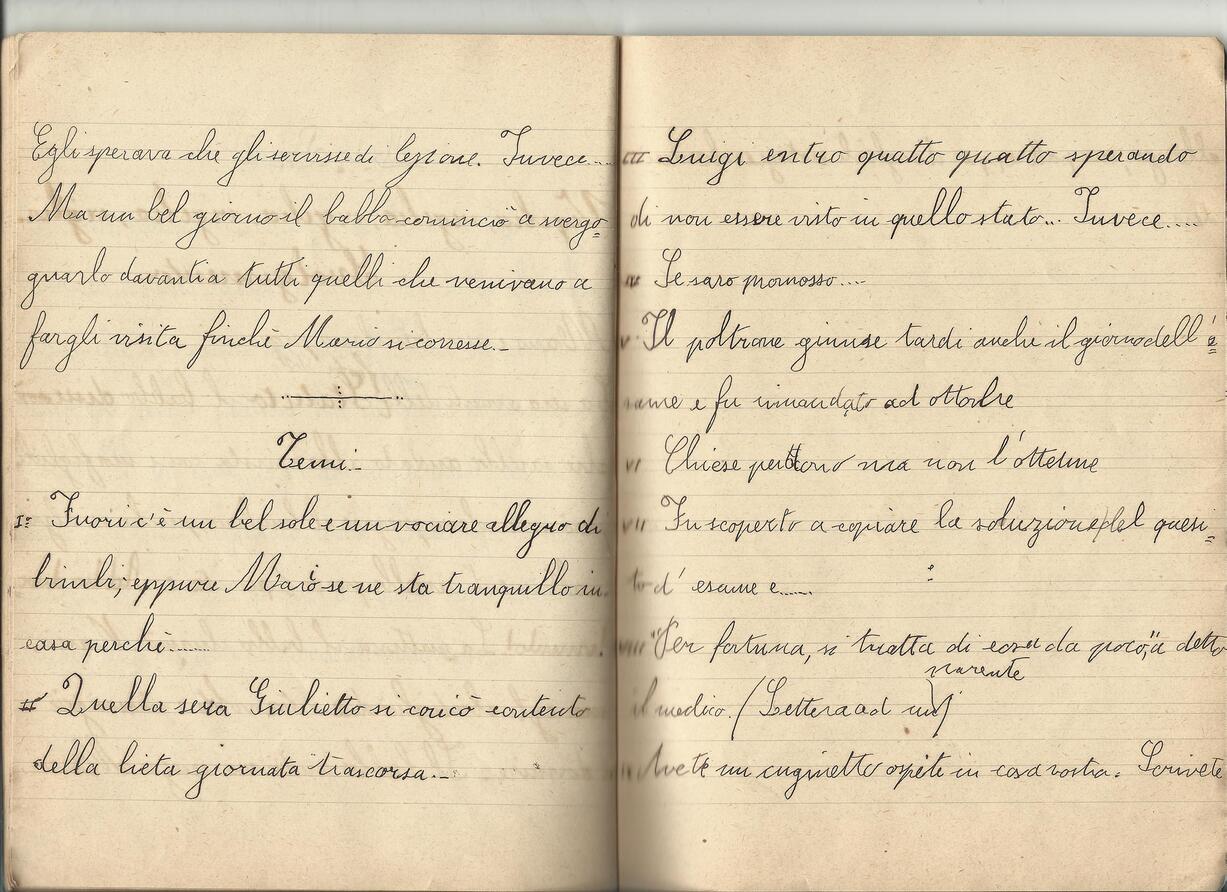 Egli sperava che gli servisse di lezione. Invece....
Ma un bel giorno il babbo cominciò a svergo=
gnarlo davanti a tutti quelli che venivano a
fargli visita finchè Mario si corresse.-
Temi.-
I= Fuori c'è un bel sole e un vociare allegro di
bimbi; eppure Mario se ne sta tranquillo in
casa perchè.......
II= Quella sera Giulietto si coricò contento
della lieta giornata trascorsa.-
III Luigi entro quatto quatto sperando
di non essere visto in quello stato... Invece....
IV Se saro promosso....
V Il poltrone giunse tardi anche il giorno dell'e=
same e fu rimandato ad ottobre
VI Chiese perdono ma non l'ottenne
VII Fu scoperto a copiare la soluzione del quesi=
to d'esame e......
VIII "Per fortuna, si tratta di cosa da poco," a detto
parente
il medico. (Lettera ad un)
Avete un cuginetto ospite in casa vostra. Scrivete